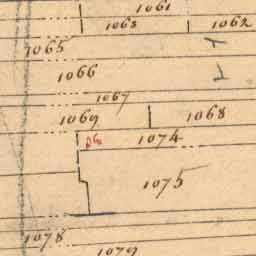 1061
1063 1062
1065
1066
1067
1069 1068
1074
1075
1078
1079